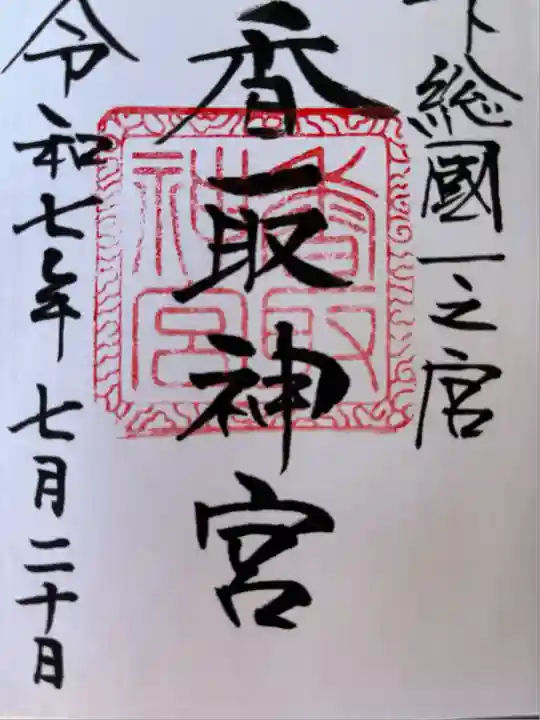 下総國一之宮
香取神宮
香取神宮
令和七年七月二十日